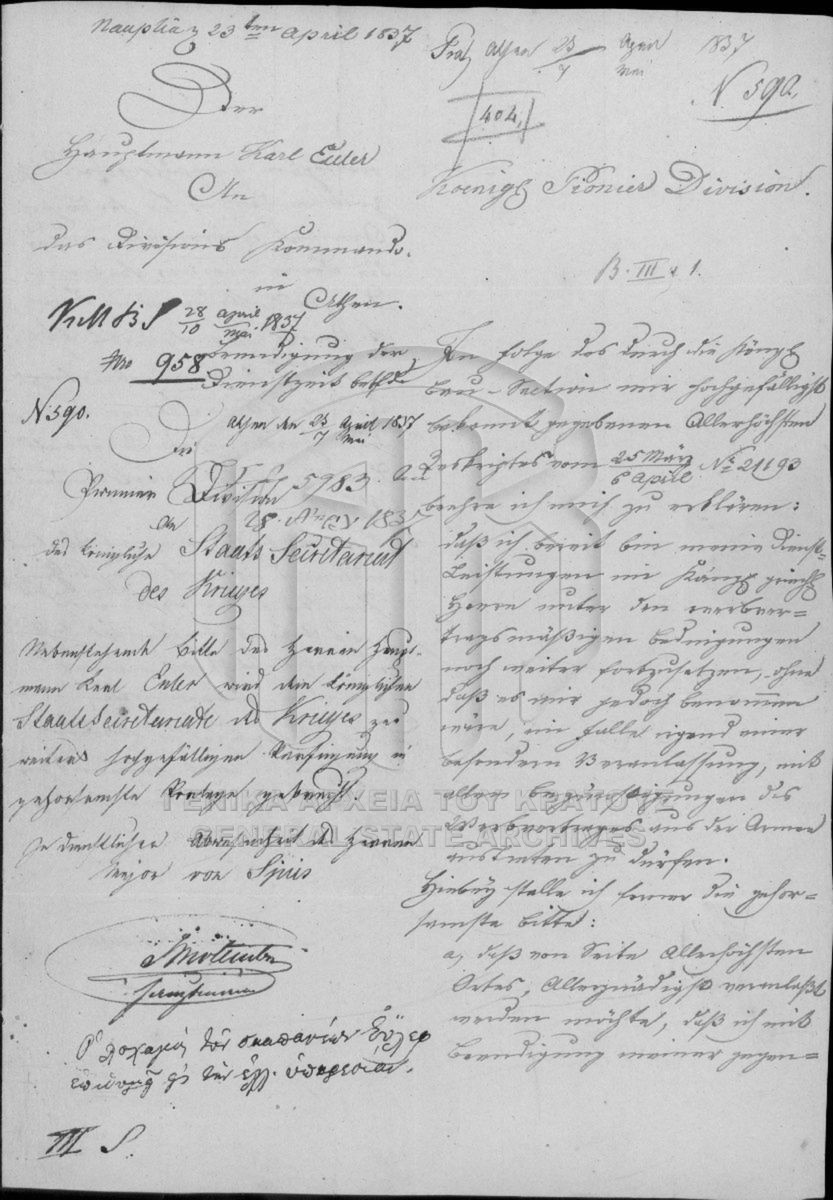 Nauplia, 23ten April 1837
Praes Athen 23/7 April/Mai 1837
N 590.
404
Der
Hauptmann Karl Euler
An
das Divisions Kommando.
in
Athen.
Koenigl Pionier Division.
B. III, 1.
28/10 April/Mai 1837
Nro 958
Beendigung der
Dienstzeit betfd.
N 590.
Athen den 23/7 April/Mai 1837
Die
Pionnier Division 5983.
an
28. 1837
das königliche Staats Secretariat
des Krieges
Nebenstehende Bitte des Herrn Haupt-
mann Karl Euler wird dem königlichen
Staats Secretariate des Krieges zur
weitern hochgefälligen Verfügung in
gehorsamste Vorlage gebracht.
In dienstlicher Abwesenheit des Herrn
Major von Spies
Hauptmann
Ὁ λοχαγὸς τῶν σκαπανέων Ἔϋλερ
ἐπιθυμεῖ εἰς τὴν ἑλλ. ὑπηρεσίαν.
III S.
In Folge des durch die Königl
Bau-Section mir hochgefälligst
bekannt gegebenen Allerhöchsten
Reskriptes vom 25 März/6 April No 21193
beehre ich mich zu erklären:
daß ich bereit bin meine Dienst-
Leistungen im Königl griech
Heere unter den werbver-
tragsmäßigen Bedingungen
noch weiter fortzusetzen, ohne
daß es mir jedoch benommen
wäre, im Falle irgend einer
besondern Veranlassung, mit
allen Begünstigungen des
Werbvertrages aus der Armee
austreten zu dürfen.
Hiebey stelle ich ferner die gehor-
samste Bitte:
a, daß von Seite Allerhöchsten
Ortes, Allergnädigst veranlaßt
werden möchte, daß ich mit
Beendigung meiner gegen-
ΓΕΝΙΚΑ ΑΡΧΕΙΑ ΤΟΥ ΚΡΑΤΟΥΣ
GENERAL STATE ARCHIVES